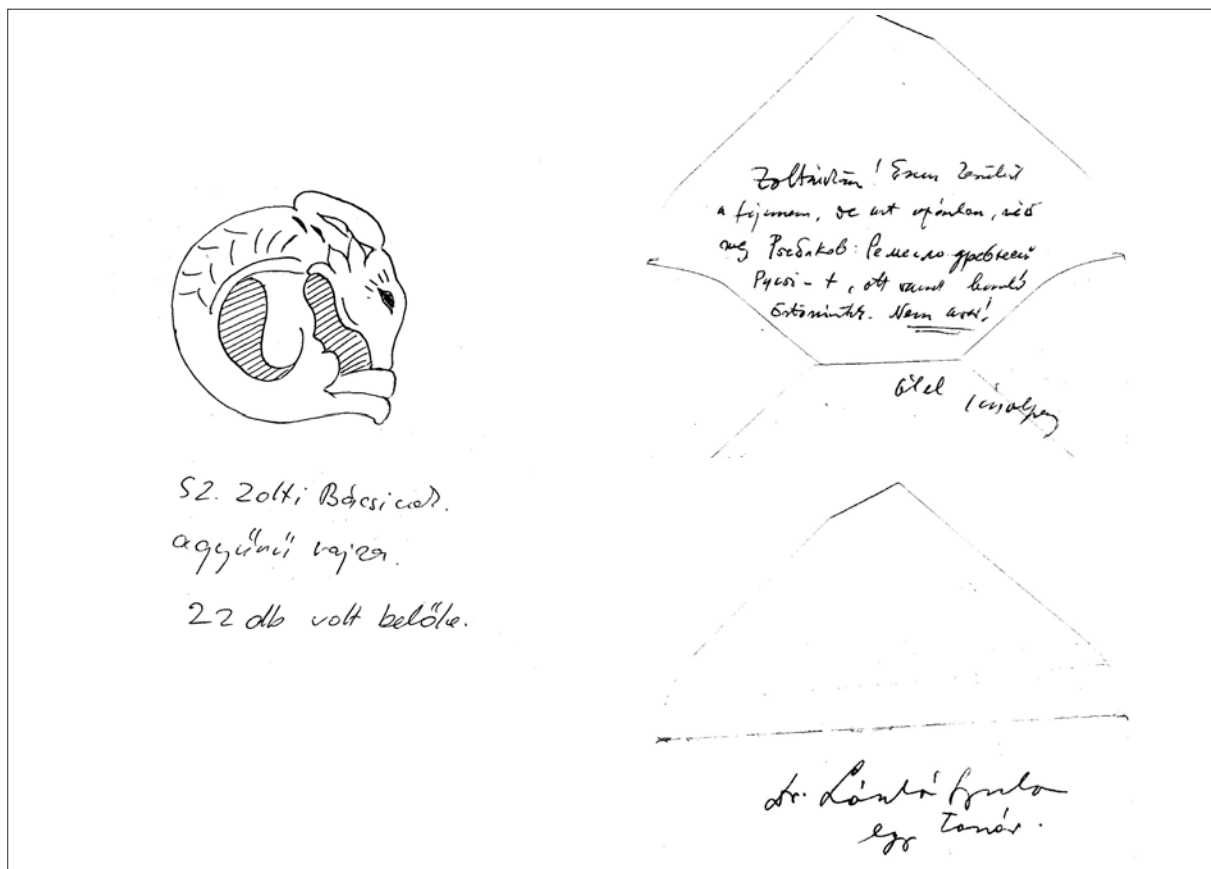 SZ. Zolti Bácsinak.
a gyűrű rajza.
22 db volt belőle.
Zoltánkám! Eszem
a fejemen, de azt ajánlom, nézd
meg Рыбаков: Ремесло древней
Руси-t, ott vannak hasonló
öntőminták. Nem avar!
ölel
dr. László Gyula
egy. tanár.